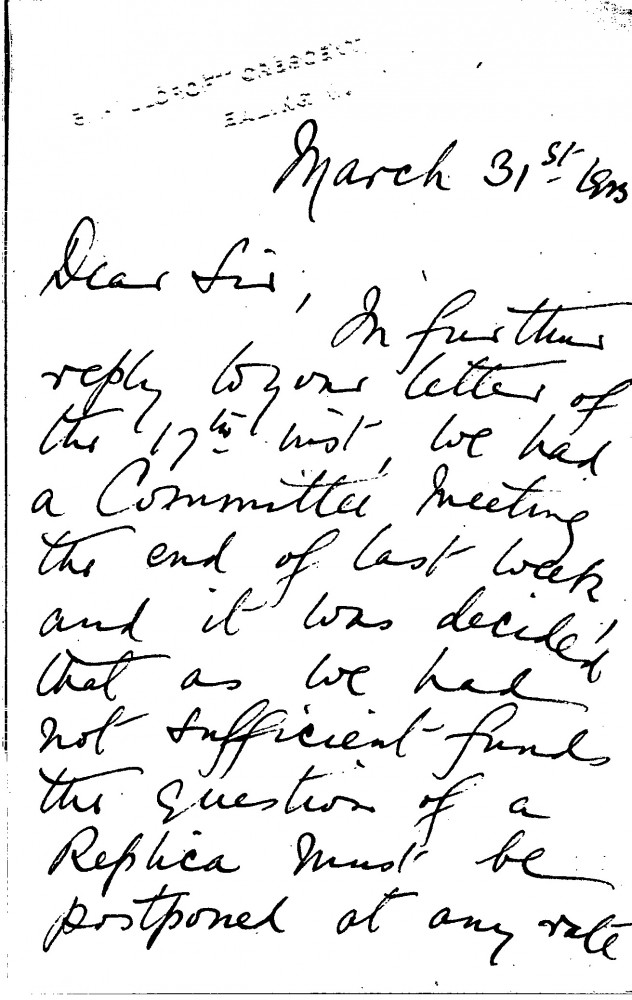 CRESCENT
EALING W.
March 31st
Dear Sir,
In further
reply to your letter of
the 17th inst, we had
a Committee Meeting
the end of last week
and it was decided
that as we had
not sufficient funds
the question of a
Replica must be
postponed at any rate